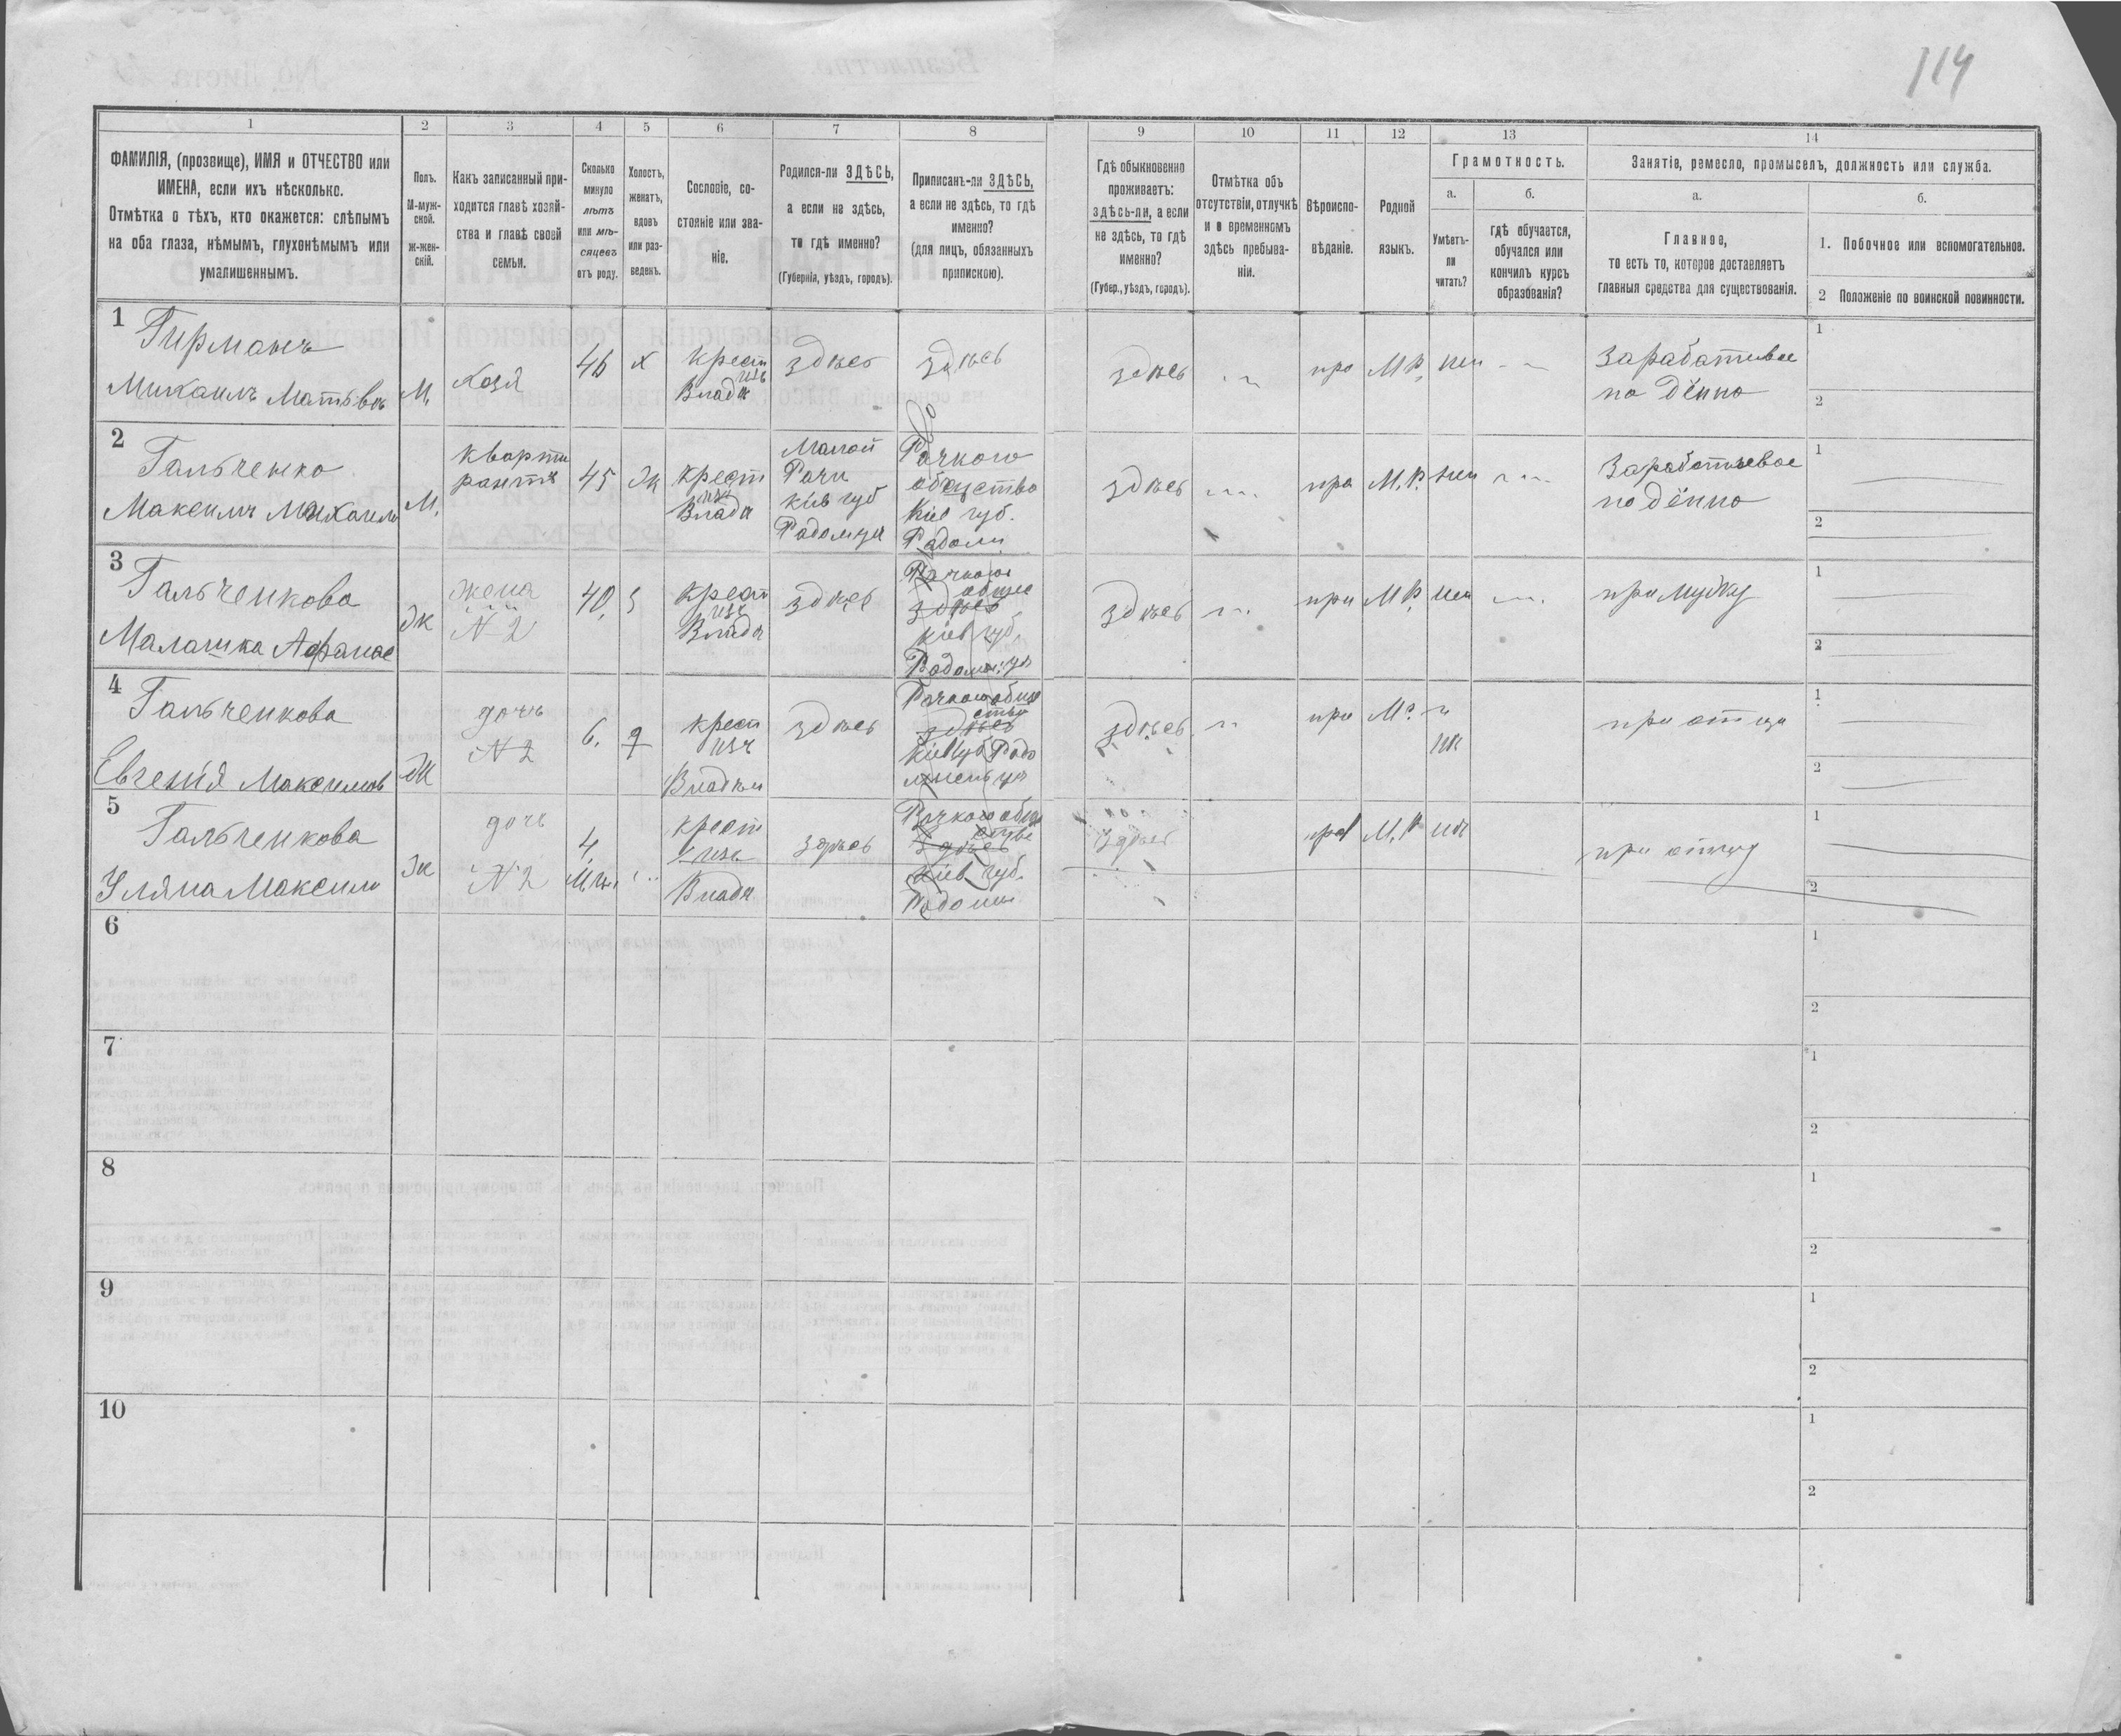 114
1
2
3
4
5
6
7
8
9
10
11
12
13
14
ФАМИЛІЯ, (прозвище), ИМЯ и ОТЧЕСТВО или
ИМЕНА, если ихъ нѣсколько.
Отмѣтка о тѣхъ, кто окажется: слѣпымъ
на оба глаза, нѣмымъ, глухонѣмымъ или
умалишеннымъ.
Полъ.
М-муж-
ской.
ж-жен-
скій.
Какъ записанный при-
ходится главѣ хозяй-
ства и главѣ своей
семьи.
Сколько
минуло
лѣтъ
или мѣ-
сяцевъ
отъ роду.
Холостъ,
женатъ,
вдовъ
или раз-
веденъ.
Сословіе, со-
стояніе или зва-
ніе.
Родился-ли ЗДѢСЬ,
а если не здѣсь,
то гдѣ именно?
(Губернія, уѣздъ, городъ).
Приписанъ-ли ЗДѢСЬ,
а если не здѣсь, то гдѣ
именно?
(для лицъ, обязанныхъ
припискою).
Гдѣ обыкновенно
проживаетъ:
здѣсь-ли, а если
не здѣсь, то гдѣ
именно?
(Губер., уѣздъ, городъ).
Отмѣтка объ
отсутствіи, отлучкѣ
и о временномъ
здѣсь пребыва-
ніи.
Вѣроиспо-
вѣданіе.
Родной
языкъ.
Грамотность.
а.
Умѣетъ-
ли
читать?
б.
гдѣ обучается,
обучался или
кончилъ курсъ
образованія?
Занятіе, ремесло, промыселъ, должность или служба.
а.
Главное,
то есть то, которое доставляетъ
главныя средства для существованія.
б.
1. Побочное или вспомогательное.
2 Положеніе по воинской повинности.
1
Гирманъ
Михаилъ Матѣвъ
М.
хозя
46
х
крест
изъ
Влад
здѣсь
здѣсь
здѣсь
пра
М.Р.
нем
по дённо
1
2
2
Гальченко
Максимъ Михаил
М.
кварти
рантъ
45
ж
крест
изъ
Влад
Малой
Рачи
Кіев губ
Радом уя
Рачкого
общество
Кіев губ.
Радом
здѣсь
пра
М.Р.
по дённо
1
2
3
Гальченкова
Малашка Афанас
ж
жена
N 2
40.
крест
изъ
Влад
здѣсь
Рачкого
обще
здѣсь
Кіев губ.
Радом. уя
здѣсь
при
М Р.
при мужу
1
2
4
Гальченкова
Евгенія Максимов
ж
дочь
N 2
6.
крест
изъ
Владѣл
здѣсь
Рачкого обще
ство
здѣсь
Кіев губ Радо
здѣсь
при
при отца
1
2
5
Гальченкова
Уляна Максим
ж
дочь
N 2
4
крест
изъ
Влад
здѣсь
Рачкого обще
ство
здѣсь
Кіев губ.
Радом
здѣсь
М.Р
при отцу
1
2
6
1
2
7
1
2
8
1
2
9
1
2
10
1
2